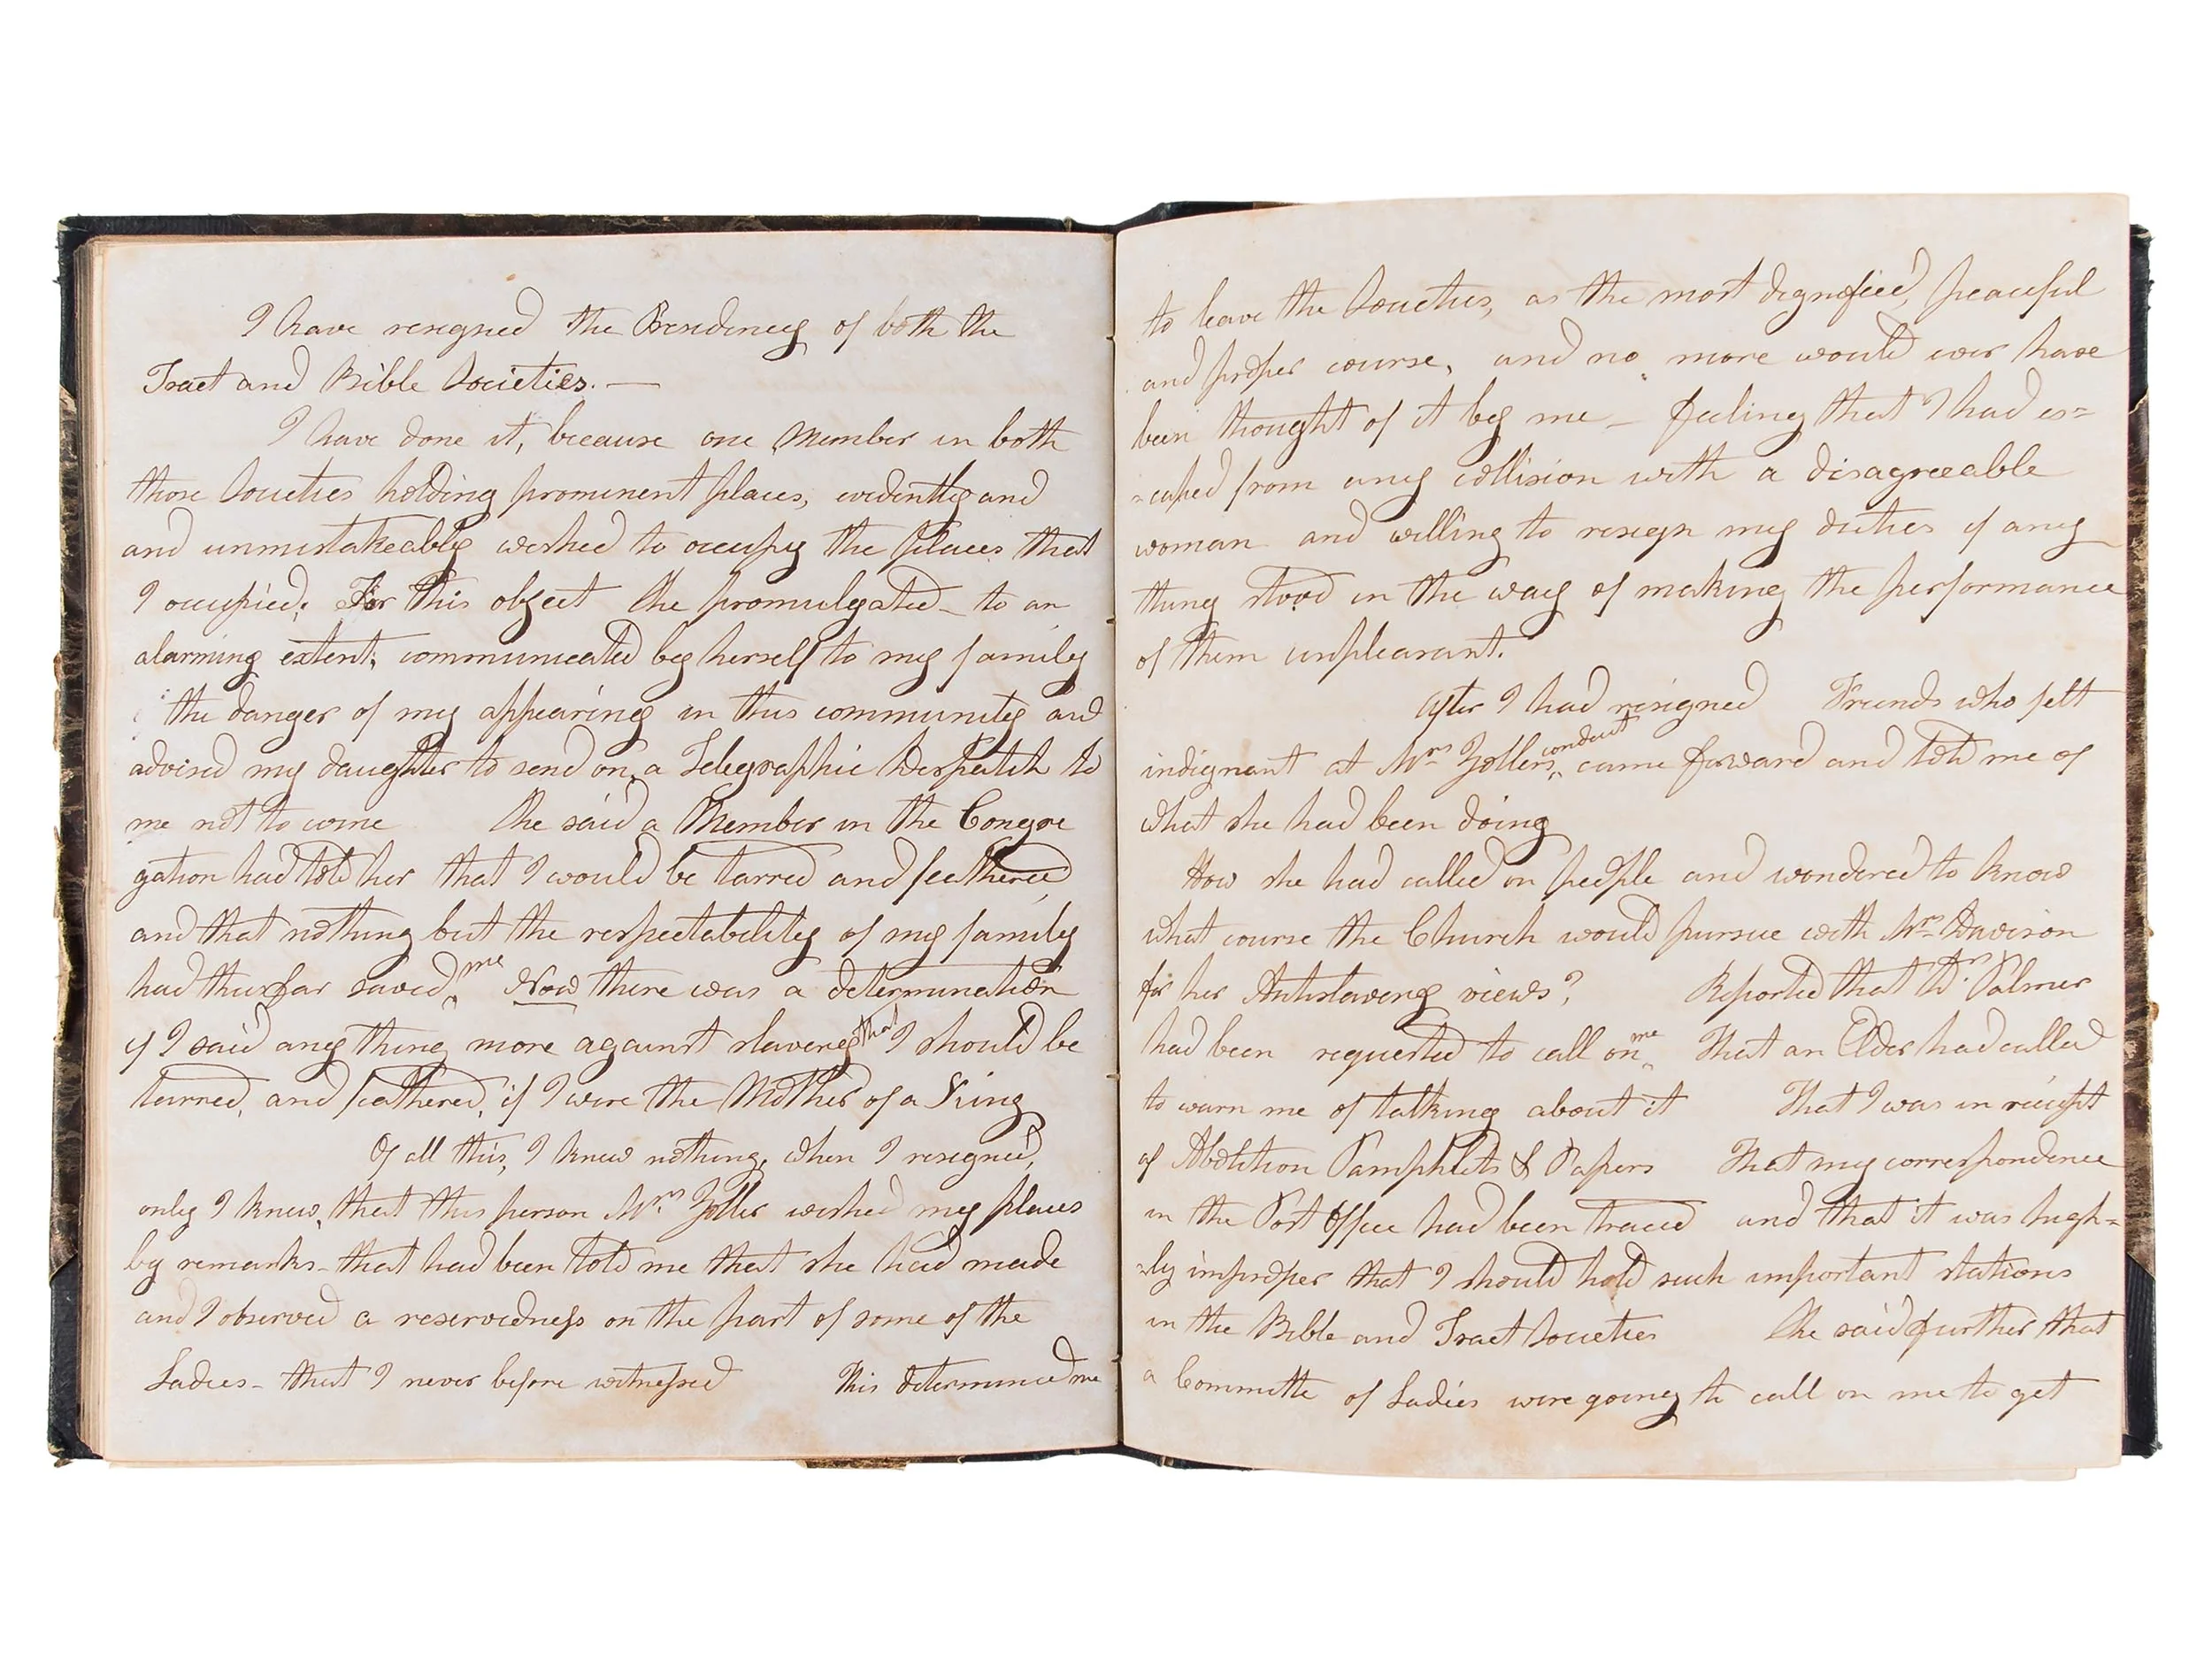 I have resigned the Presidency of both the
Tract and Bible Societies. —
I have done it, because one Member in both
those Societies holding prominent places, evidently and
and unmistakeably wished to occupy the places that
I occupied; For this object She promulgated - to an
alarming extent, communicated by herself to my family
the danger of my appearing in this community and
advised my daughter to send on, a Telegraphic Despatch to
me not to come She said a Member in the Congre
gation had told her that I would be tarred and feathered
and that nothing but the respectability of my family
had thus far saved me Now there was a determination
if I said any thing more against slavery that I should be
tarred, and feathered, if I were the Mother of a King
Of all this, I knew nothing, when I resigned,
only I knew, that this person Mrs. Zoller wished my places
by remarks - that had been told me that she had made
and I observed a reservedness on the part of some of the
Ladies - that I never before witnessed This determined me
to leave the Societies, as the most dignified, peaceful
and proper course, and no more would ever have
been thought of it by me - feeling that I had es=
=caped from any collision with a disagreeable
woman and willing to resign my duties if any
thing stood in the way of making the performance
of them unpleasant.
After I had resigned Friends who felt
indignant at Mrs Zollers conduct came forward and told me of
what she had been doing
How she had called on people and wondered to know
what course the Church would pursue with Mrs Davison
for her Antislavery views? Reported that Dr. Palmer
had been requested to call on me That an Elder had called
to warn me of talking about it That I was in receipt
of Abolition Pamphlets & Papers That my correspondence
in the Post Office had been traced and that it was high=
=ly improper that I should hold such important stations
in the Bible and Tract Societies She said further that
a Committe of Ladies were going to call on me to get